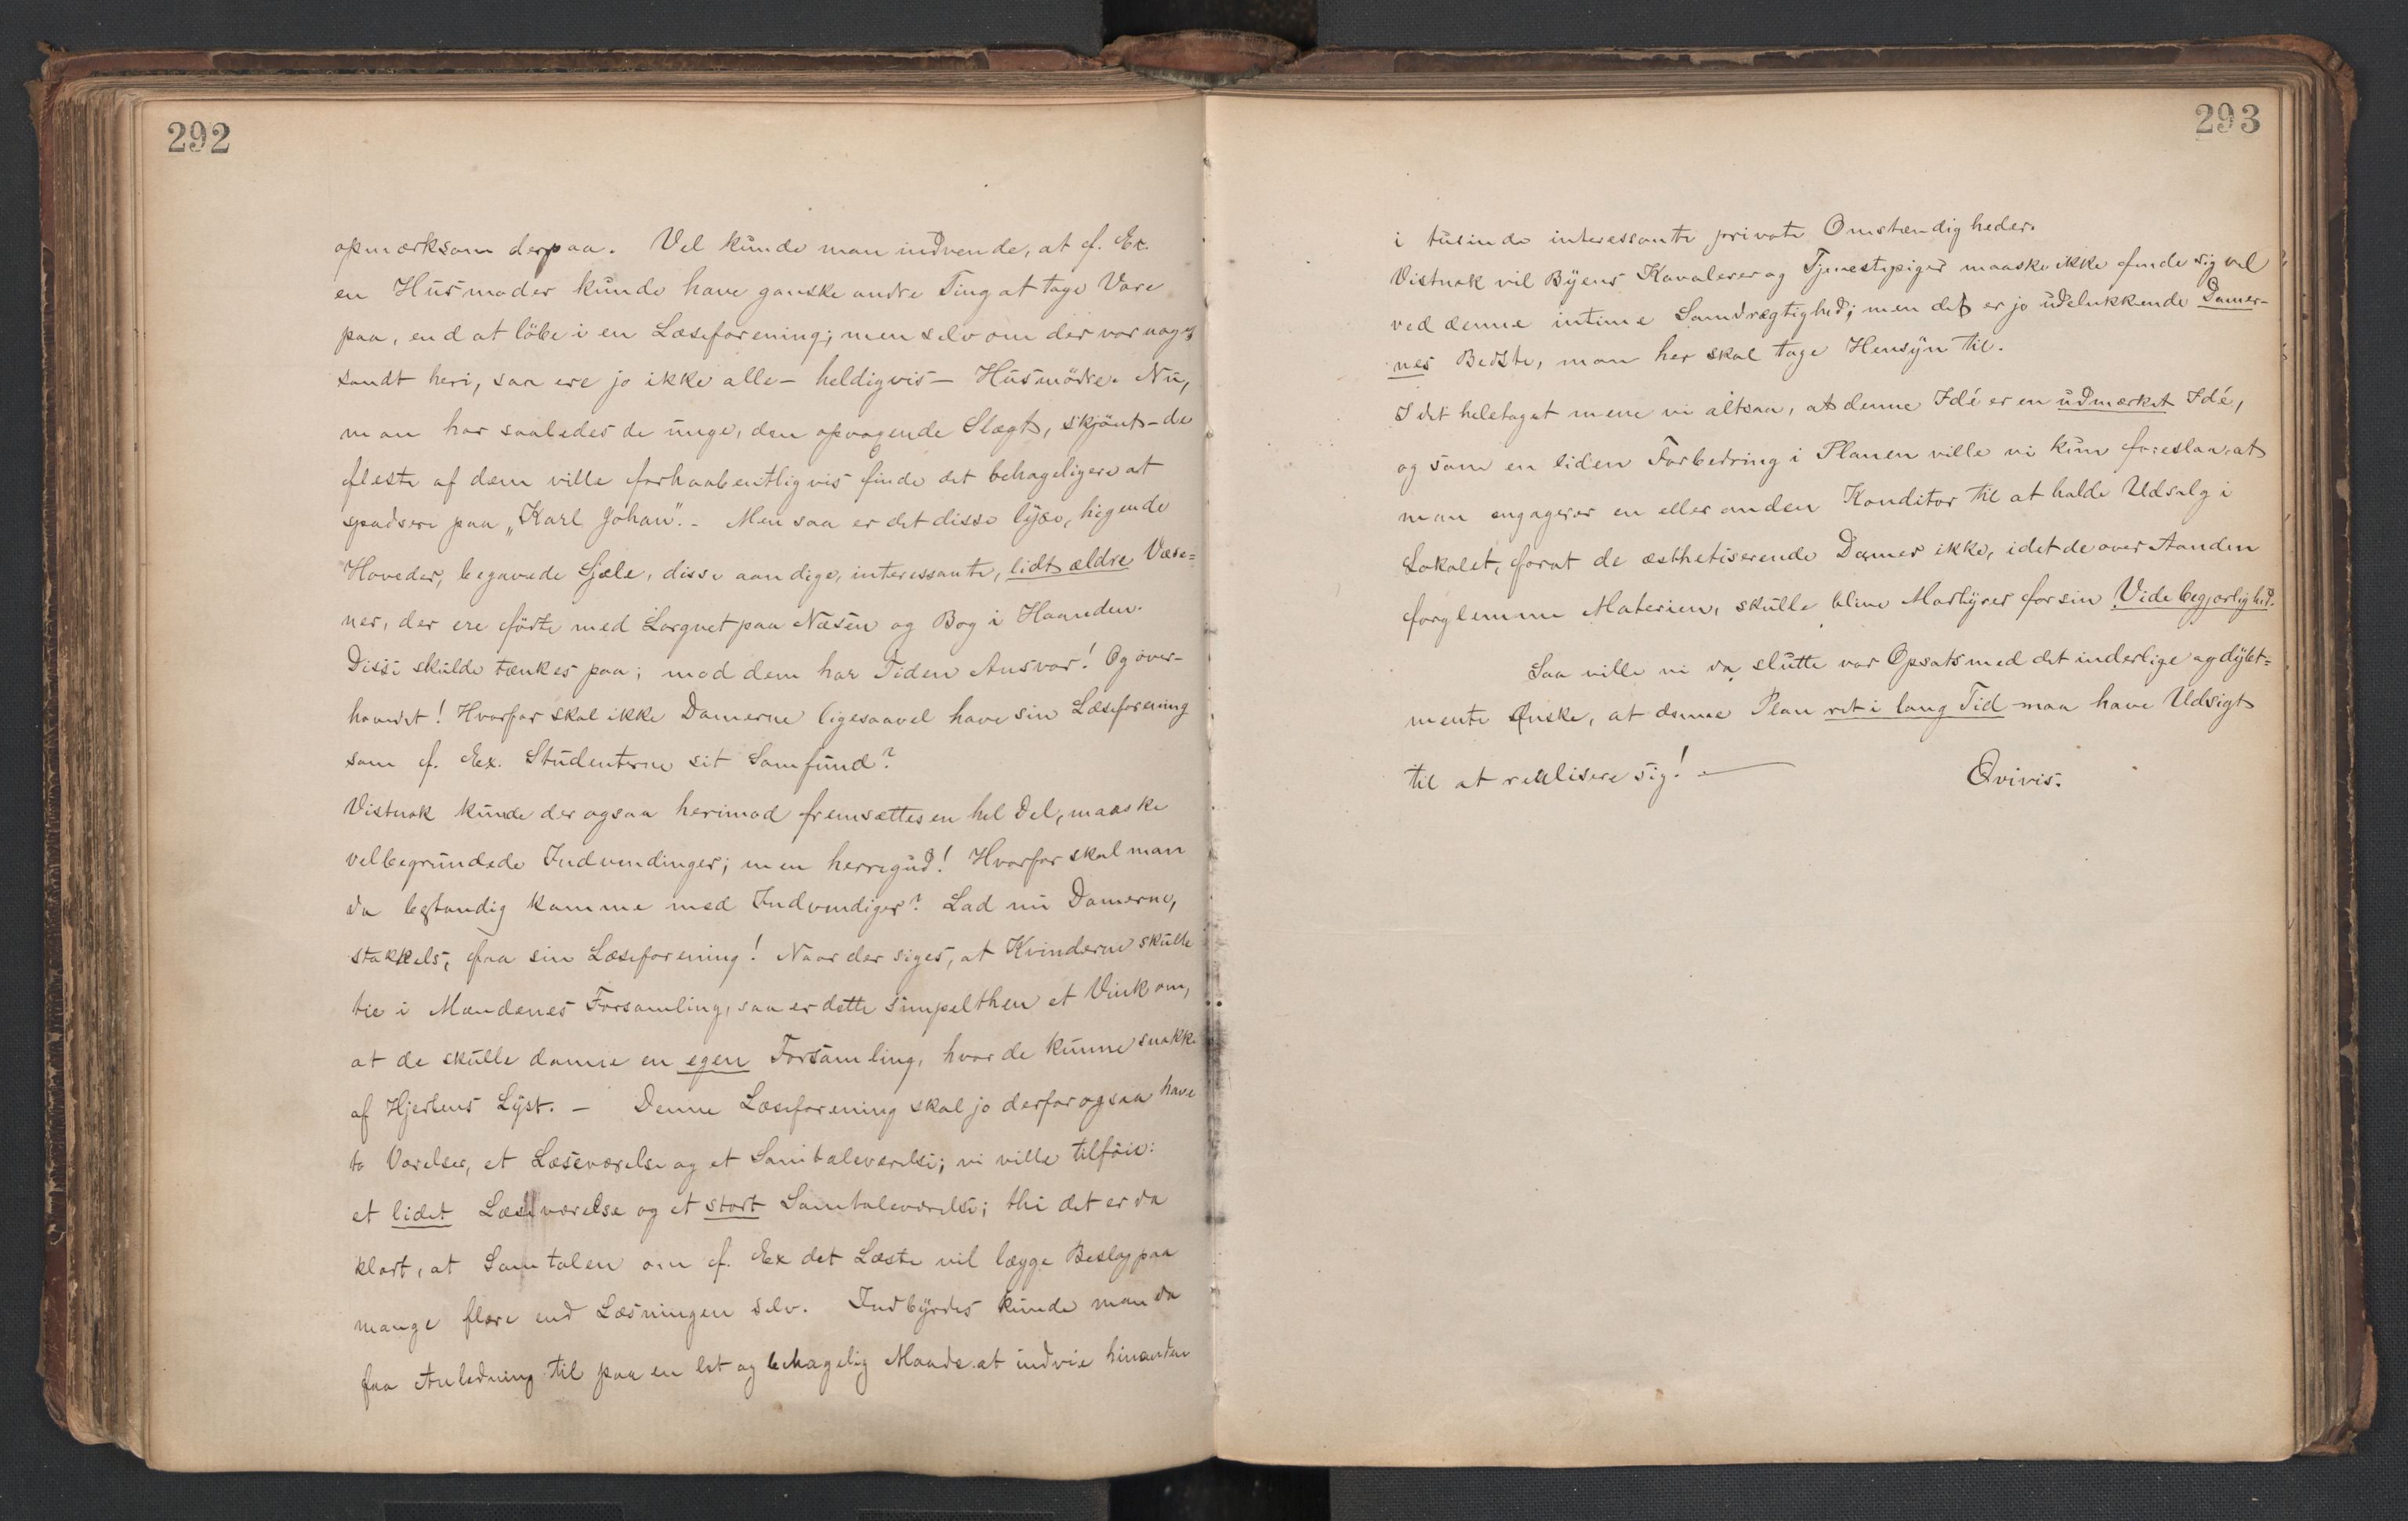 292
opmærksom derpaa. Vel kunde man indvende, at f. Ex.
en Husmoder kunde have ganske andre Ting at tage Vare
paa, end at löbe i en Læseforening; men selv om der var noget
sandt heri, saa ere jo ikke alle - heldigvis - Husmödre. Nu,
man har saaledes de unge, den opvoxende Slægt, skjönt de
fleste af dem ville forhaabentligvis finde det behageligere at
spadsere paa „Karl Johan". - Men saa er det disse lyse, higende
Hoveder, begavede Sjæle, disse aandige, interessante, lidt ældre Væse=
ner, der ere födte med Lorgnet paa Næsen og Bog i Haanden.
Disse skulde tænkes paa; mod dem har Tiden Ansvar! Og over-
hovedet! Hvorfor skal ikke Damerne ligesaavel have sin Læseforening
som f. Ex. Studenterne sit Samfund?
Vistnok kunde der ogsaa herimod fremsættes en hel Del, maaske
velbegrundede Indvendinger; men herregud! Hvorfor skal man
da bestandig komme med Indvendiger? Lad nu Damerne,
stakkels, faa sin Læseforening! Naar der siges, at Kvinderne skulle
tie i Mændenes Forsamling, saa er dette simpelthen et Vink om,
at de skulle danne en egen Forsamling, hvor de kunne snakke
af Hjertens Lyst. - Denne Læseforening skal jo derfor ogsaa have
to Værelser, et Læseværelse og et Samtaleværelse; vi ville tilföie:
et lidet Læseværelse og et stort Samtaleværelse; thi det er da
klart, at Samtalen om f. Ex det Læste vil lægge Beslag paa
mange flere end Læsningen selv. Indbyrdes kunde man da
faa Anledning til paa en let og behagelig Maade at indvie hinanden
293
i tusinde interessante private Omstændigheder.
Vistnok vil Byens Kavalerer og Tjenestepiger maaske ikke finde sig vel
ved denne intime Samdrægtighed; men det er jo udelukkende Damer-
nes Bedste, man her skal tage Hensyn til.
I det heletaget mene vi altsaa, at denne Idé er en udmærket Idé,
og som en liden Forbedring i Planen ville vi kun foreslaa, at
man engagerer en eller anden Konditor til at holde Udsalg i
Lokalet, forat de æsthetiserende Damer ikke, idet de over Aanden
forglemme Materien, skulle blive Martyrer for sin Videbegjærlighed.
Saa ville vi da slutte vor Opsats med det inderlige og dybt=
mente Ønske, at denne Plan ret i lang Tid maa have Udsigt
til at realisere sig! —
Qvivis.